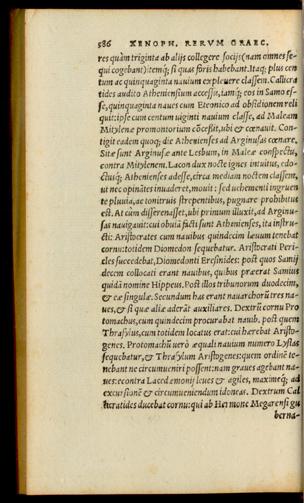 586 XENOPH. RERVM GRAEC.
res quàm triginta ab alijs collegere socijs (nam omnes se-
qui cogebant) itemq́; si quas foris habebant. Itaq; plus cen
tum ac quinquaginta nauium expleuere classem. Callicra
tides audito Atheniensium accessu, iamq́; eos in Samo es-
se, quinquaginta naues cum Eteonico ad obsidionem reli
quit: ipse cum centum uiginti nauium classe, ad Maleam
Mitylenæ promontorium cõcessit, ubi & cœnauit. Con-
tigit eadem quoq; die Athenienses ad Arginusas cœnare.
Sitæ sunt Arginusæ ante Lesbum, in Maleæ conspectu,
contra Mitylenem. Lacon dux nocte ignes intuitus, edo-
ctusq́; Athenienses adesse, circa mediam noctem classem,
ut nec opinātes inuaderet, mouit: sed uchementi ingruen
te pluuia, ac tonitruis strepentibus, pugnare prohibitus
est. At cùm disserenasset, ubi primum illuxit, ad Arginu-
sas nauigauit: cui obuiā facti sunt Athenienses, ita instru-
cti: Aristocrates cum nauibus quindecim læuum tenebat
cornu: totidem Diomedon sequebatur. Aristocrati Peri-
cles succedebat, Diomedonti Eresinides: post quos Samij
decem collocati erant nauibus, quibus præerat Samius
quidā nomine Hippeus. Post illos tribunorum duodecim,
& eæ singulæ. Secundum has erant nauarchorū tres na-
ues, & si quæ aliæ aderāt auxiliares. Dextrū cornu Pro
tomachus, cum quindecim procurabat nauib. post quem
Thrasylus, cum totidem locatus erat: cui hærebat Aristo-
genes. Protomachū uerò æquali nauium numero Lysias
sequebatur, & Thrasylum Aristogenes: quem ordinē te-
nebant ne circumueniri possent: nam graues agebant na-
ues: econtra Lacedæmonij leues & agiles, maximeq́; ad
excursionē & circumueniendum idoneas. Dextrum Cal
licratides ducebat cornu: qui ab Hermone Megarensi gu
berna-